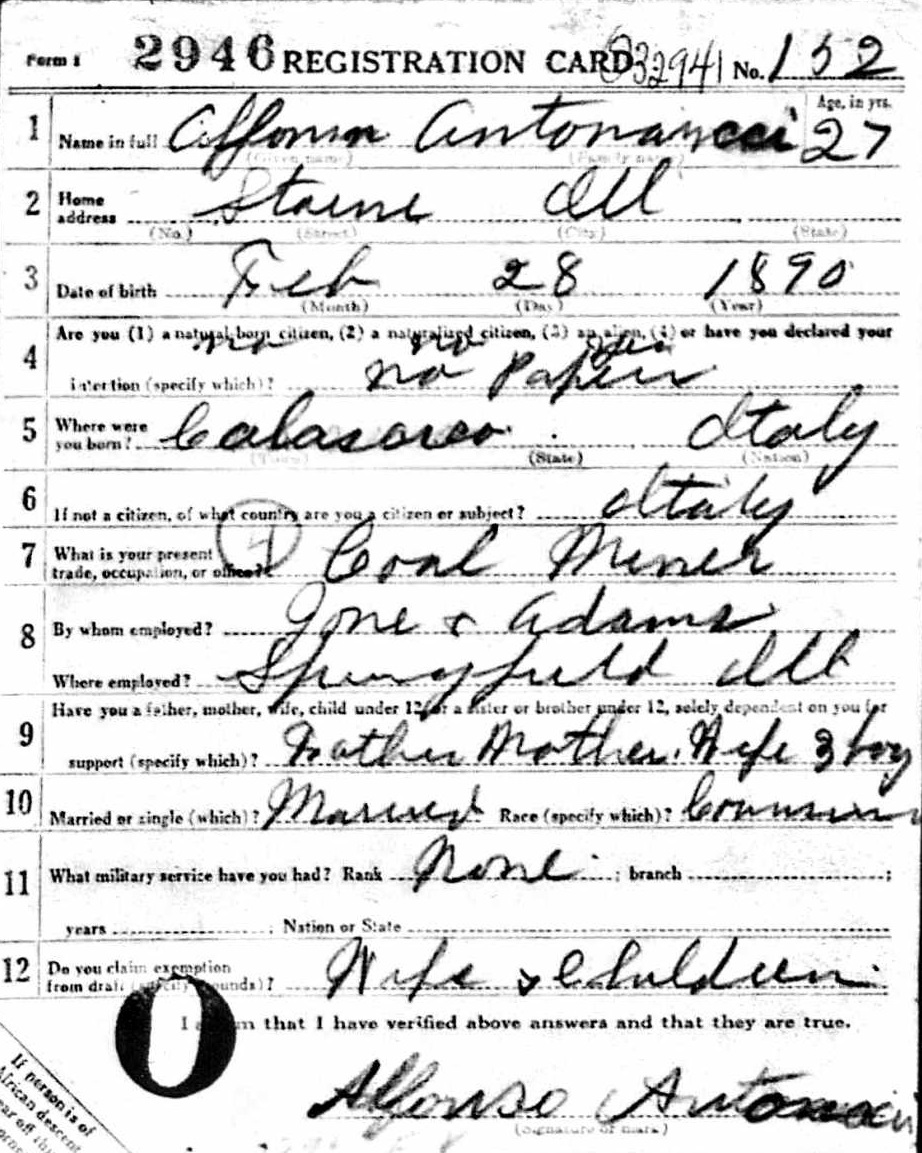 Form 1 2946 REGISTRATION CARD No. 152
1 Name in full Affonso Antonaucci Age, in yrs. 27
(Given name) (Family name)
2 Home address Ill
(No.) (Street) (City) (State)
3 Date of birth Feb 28 1890
(Month) (Day) (Year)
4 Are you (1) a natural born citizen, (2) a naturalized citizen, (3) an alien, (4) or have you declared your
no no yes
intention (specify which)? no Papers
5 Where were you born? Italy
(Town) (State) (Nation)
6 If not a citizen, of what country are you a citizen or subject? Italy
7 What is your present trade, occupation, or office? Coal Miner
8 By whom employed? Jone & Adams
Where employed? Springfield Ill
9 Have you a father, mother, wife, child under 12, or a sister or brother under 12, solely dependent on you for
support (specify which)? Father Mother. Wife 3 boy
10 Married or single (which)? Married Race (specify which)?
11 What military service have you had? Rank None ; branch ;
years ; Nation or State
12 Do you claim exemption from draft (specify grounds)? Wife & Children
I affirm that I have verified above answers and that they are true.
Alfonso Antonacci
(Signature or mark)
If person is of
African descent